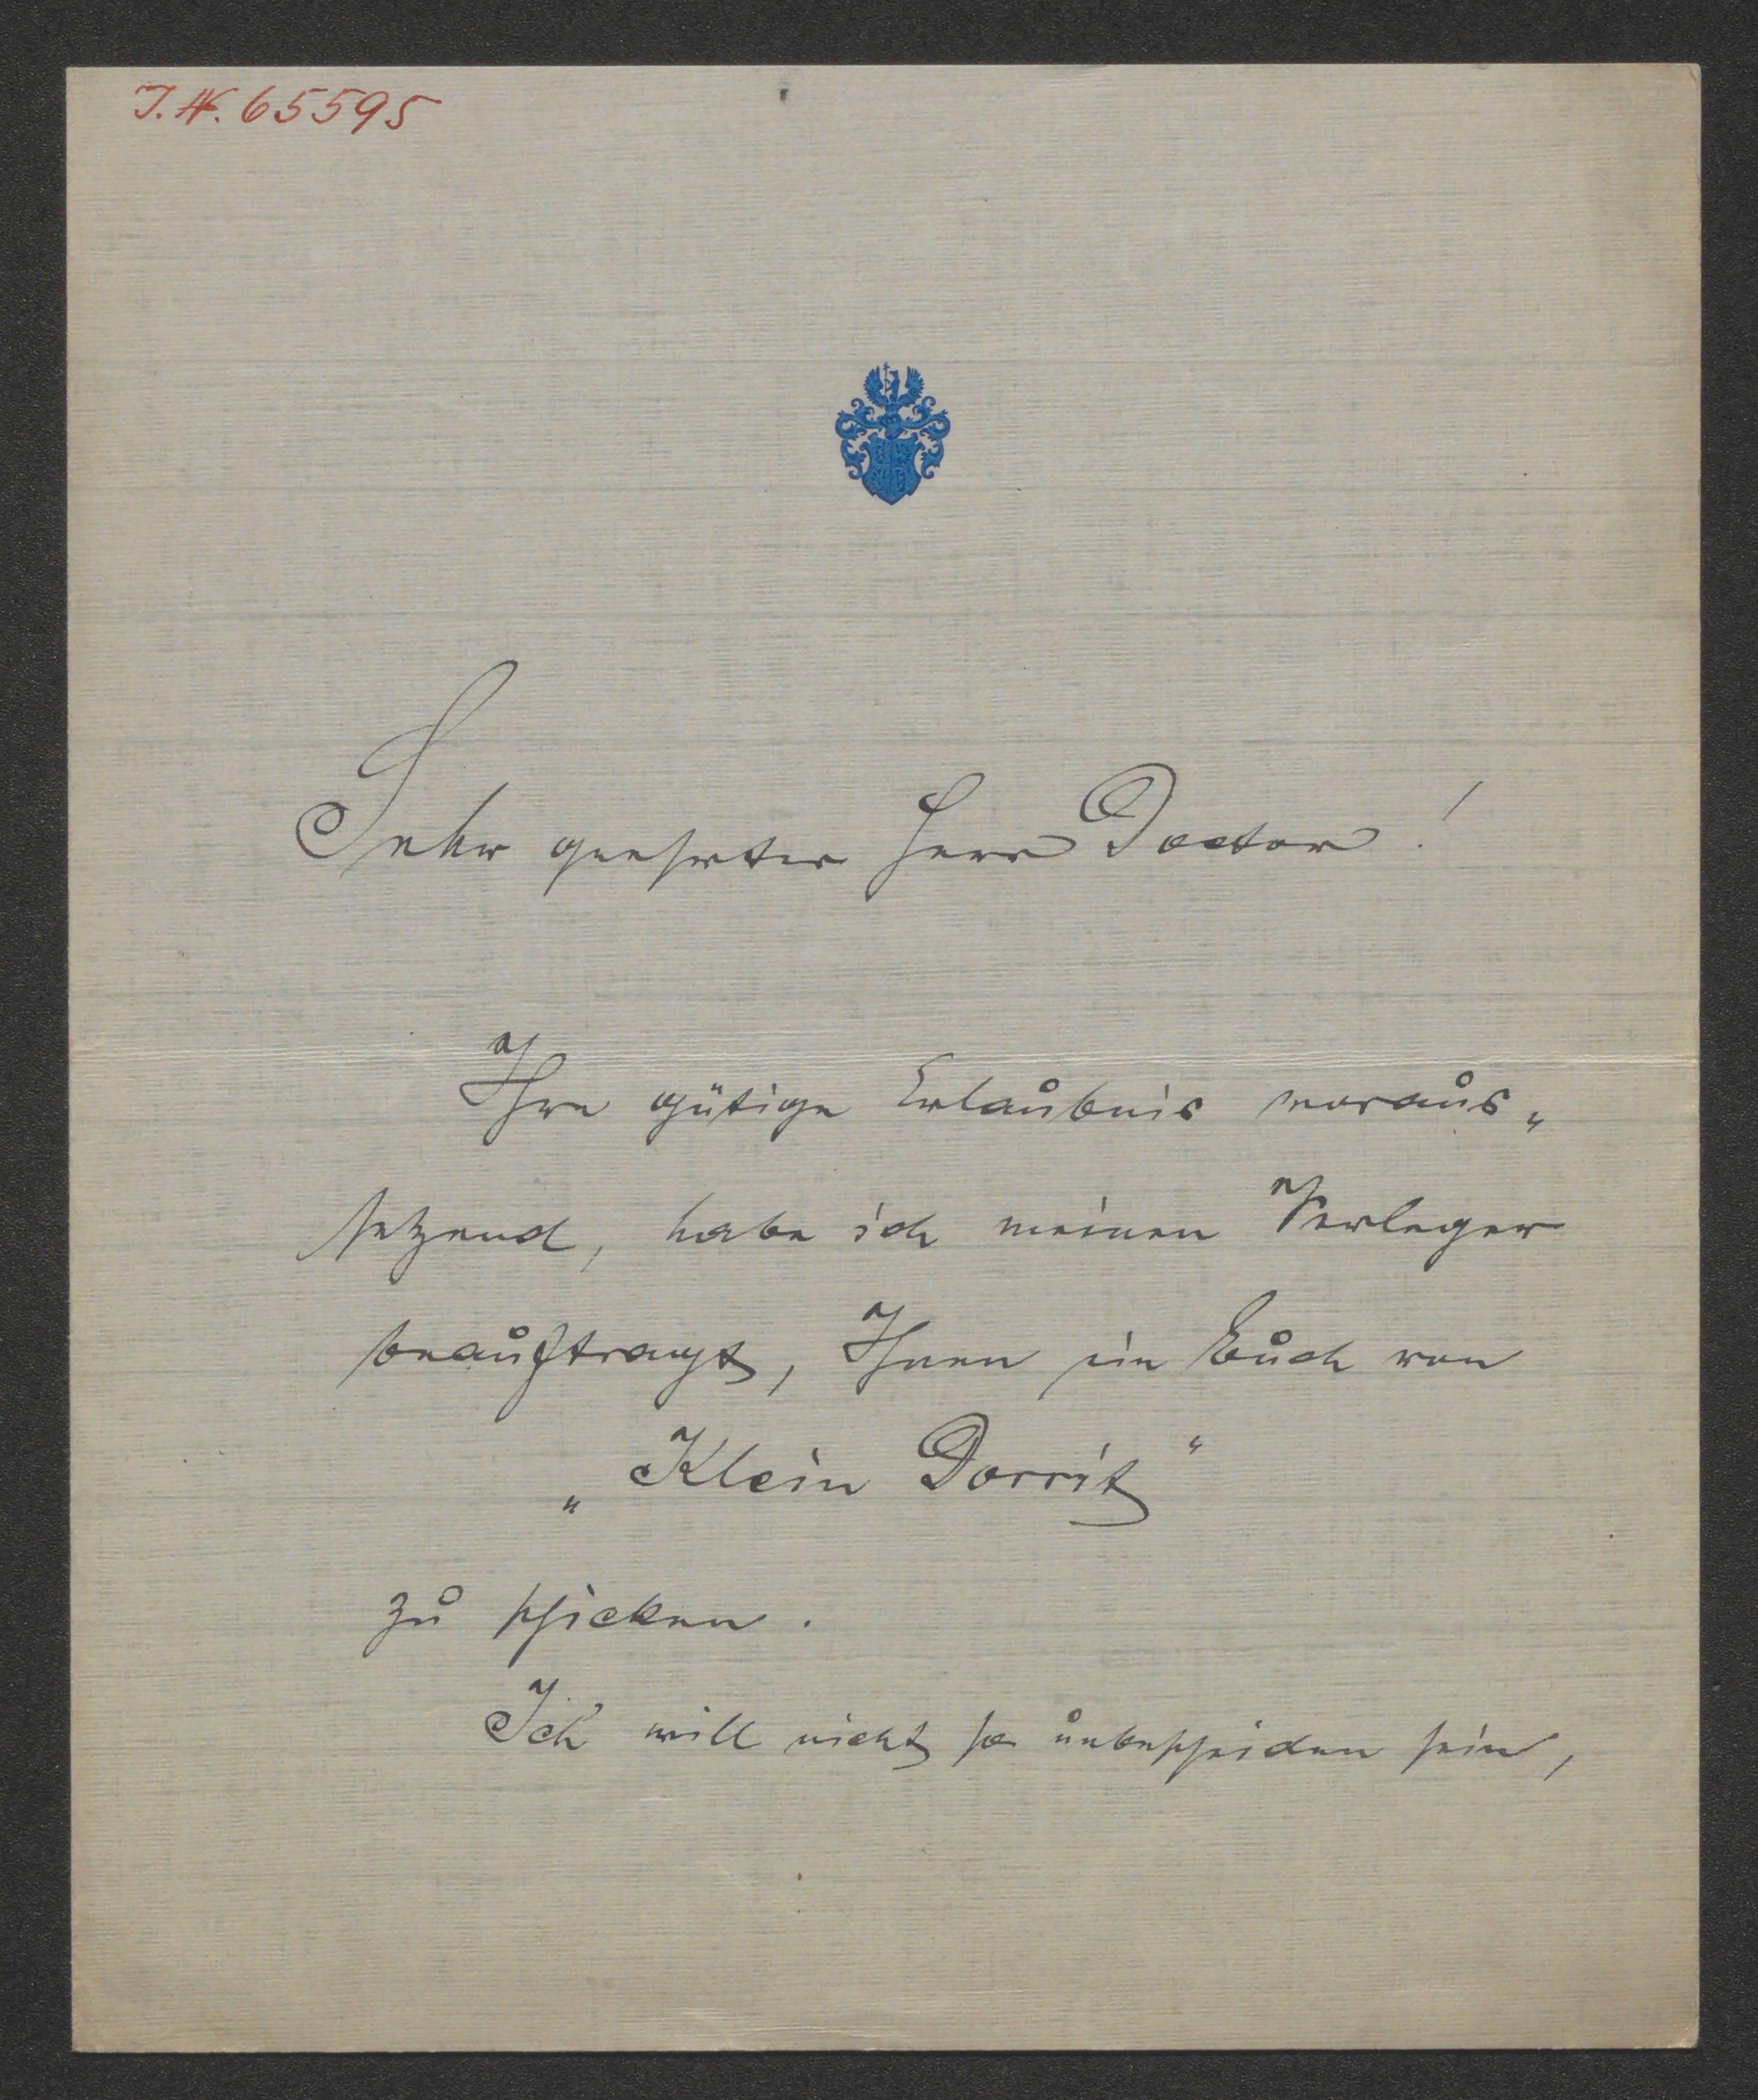 J.N. 65595
Sehr geehrter Herr Doctor!
Ihre gütige Erlaubnis voraus„
setzend, habe ich meinen Verleger
beauftragt, Ihnen ein Buch von
„Klein Dorrit“
zu schicken.
Ich will nicht so unbescheiden sein,